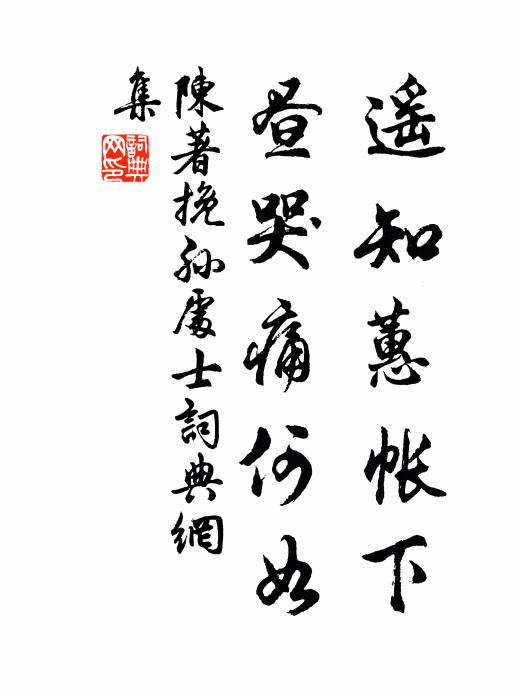 遥知蕙帳下
昼哭痛何如
陳著挽孫處士詞典網
集
詞典網印